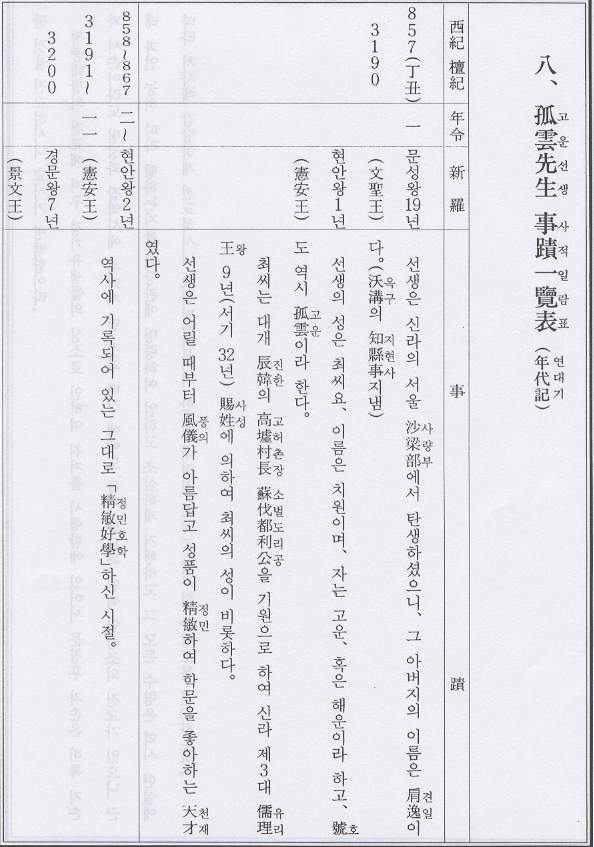 고운선생 사적일람표 연대기
八、孤雲先生 事蹟一覽表 (年代記)
西紀 檀紀 年令 新羅 事蹟
857(丁丑)
3190
一
문성왕19년
(文聖王)
현안왕1년
(憲安王)
사량부 견일
선생은 신라의 서울 沙梁部에서 탄생하셨으니、그 아버지의 이름은 肩逸이
옥구 지현사
다。(沃溝의 知縣事지냄)
호
선생의 성은 최씨요、이름은 치원이며、자는 고운、혹은 해운이라 하고、號
고운
도 역시 孤雲이라 한다。
진한 고허촌장 소벌도리공 유리
최씨는 대개 辰韓의 高墟村長 蘇伐都利公을 기원으로 하여 신라 제3대 儒理
왕 사성
王 9년(서기 32년) 賜姓에 의하여 최씨의 성이 비롯하다。
풍의 정민 천재
선생은 어릴 때부터 風儀가 아름답고 성품이 精敏하여 학문을 좋아하는 天才
였다。
858~867
3191~
3200
二~
一一
현안왕2년
(憲安王)
경문왕7년
(景文王)
정민호학
역사에 기록되어 있는 그대로 「精敏好學」하신 시절。